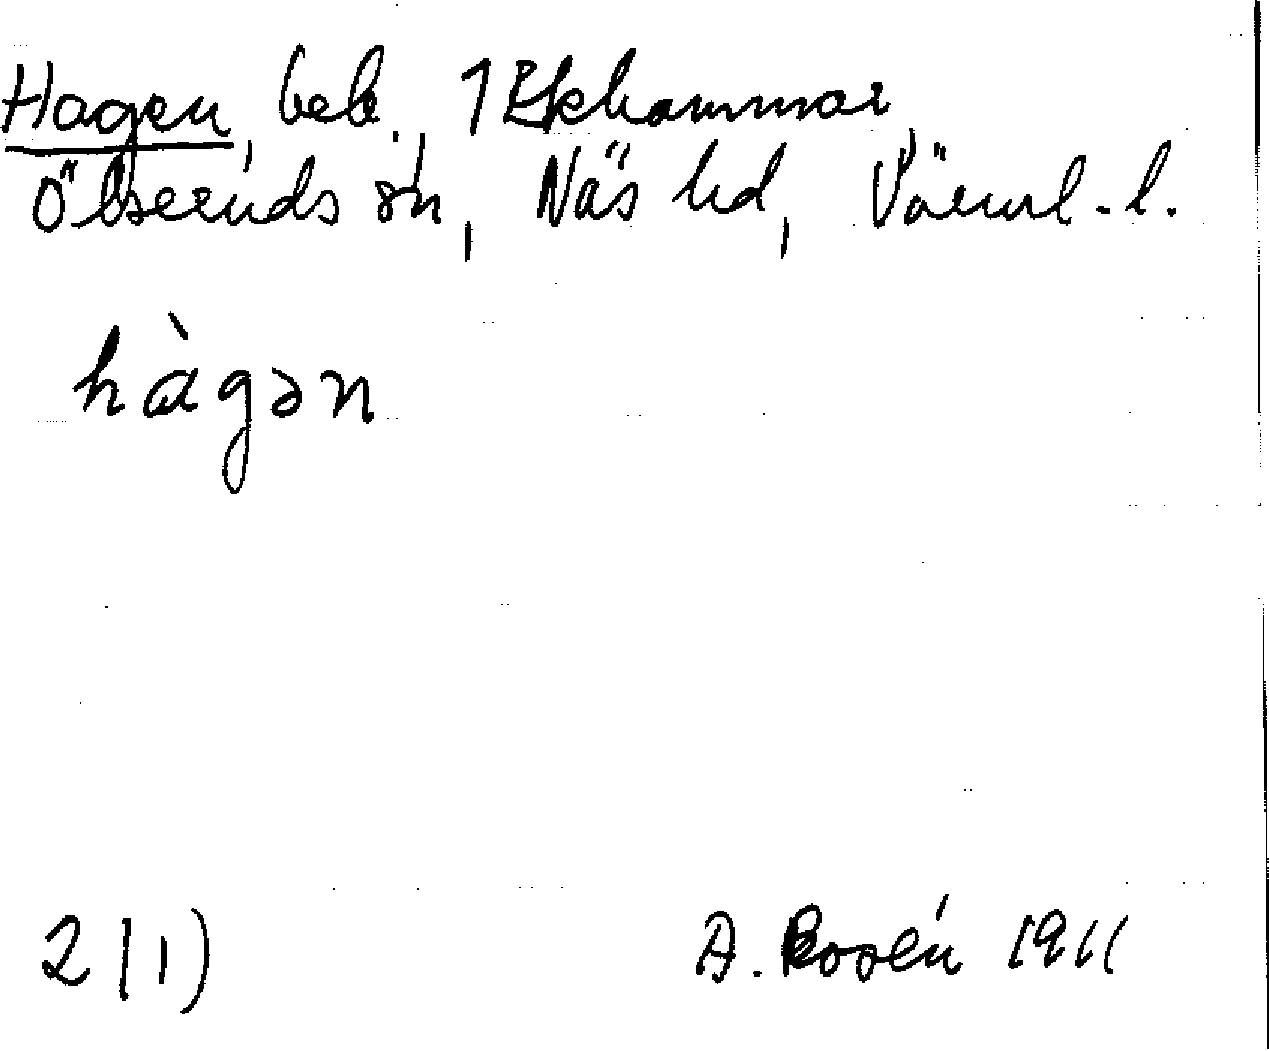 Hagen, beb., 1 Ekhammar,
Ölseruds sn, Näs hd, Värml. l.
hàgən
2(1)
A. Rosén 1911